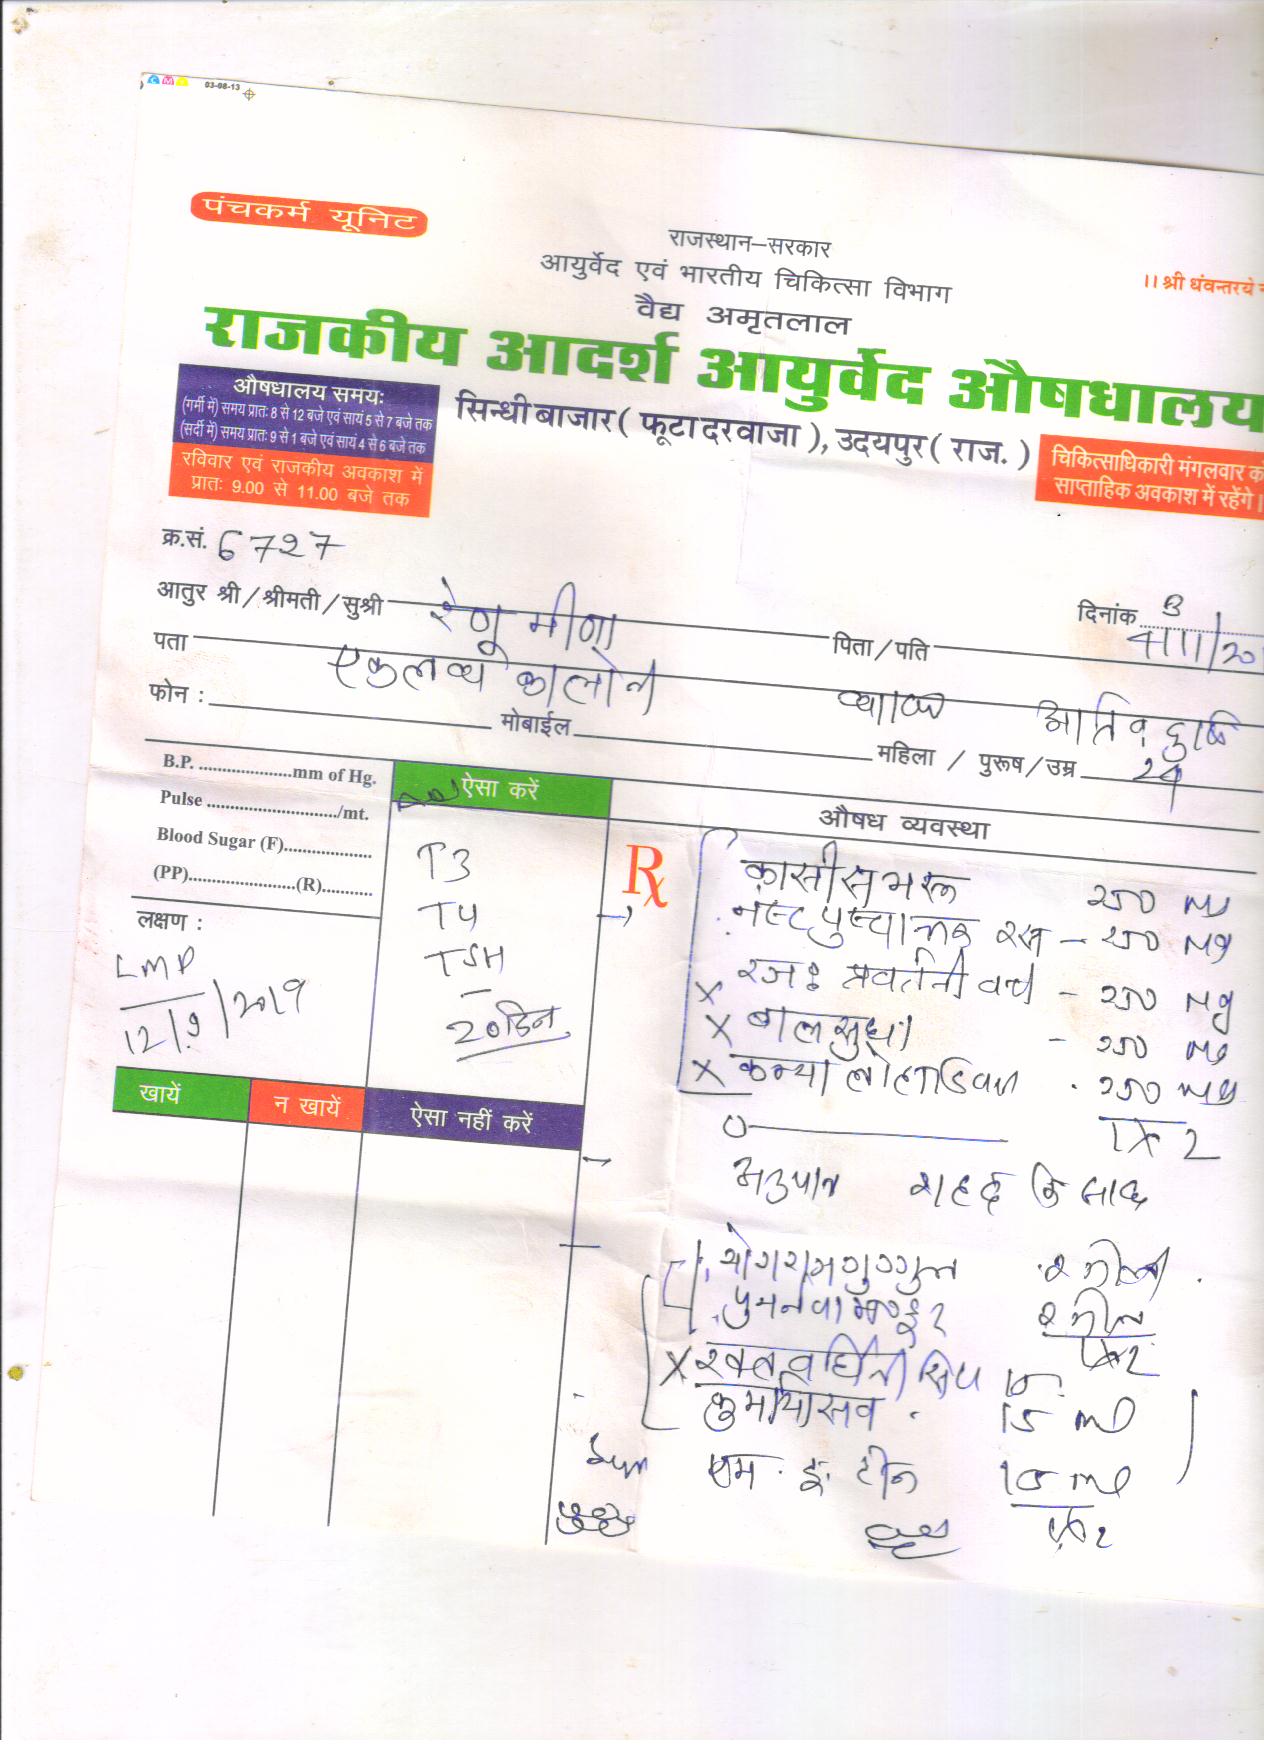 C M Y 03-08-13
पंचकर्म यूनिट
राजस्थान–सरकार
आयुर्वेद एवं भारतीय चिकित्सा विभाग
।। श्री धंवन्तरये
वैद्य अमृतलाल
राजकीय आदर्श आयुर्वेद औषधालय
औषधालय समयः
(गर्मी में) समय प्रातः 8 से 12 बजे एवं सायं 5 से 7 बजे तक
(सर्दी में) समय प्रातः 9 से 1 बजे एवं सायं 4 से 6 बजे तक
रविवार एवं राजकीय अवकाश में
प्रातः 9.00 से 11.00 बजे तक
सिन्धी बाजार ( फूटा दरवाजा ), उदयपुर ( राज. )
चिकित्साधिकारी मंगलवार को
साप्ताहिक अवकाश में रहेंगे।
क्र.सं. 6727
आतुर श्री / श्रीमती / सुश्री रेणु मीणा
दिनांक 4/11/20
पता एकलव्य कालोनी
पिता / पति
फोन : मोबाईल
महिला / पुरूष / उम्र 24
B.P. ....................mm of Hg.
Pulse ............................./mt.
Blood Sugar (F)...................
(PP).......................(R)...........
लक्षण :
LMP
12/9/2019
ऐसा करें
T3
T4
TSH
20 दिन
खायें
न खायें
ऐसा नहीं करें
औषध व्यवस्था
Rx
कासीस भस्म २५० mg
नष्टपुष्पान्तक रस – २५० mg
x रजः प्रवर्तनी वटी – २५० mg
x बालसुधा – २५० mg
x कन्या लोहादि वटी . २५० mg
1x2
अनुपान शहद के साथ
योगराज गुग्गुल २ गोली
पुनर्नवा मण्डूर २ गोली
1x2
x रक्तवर्धिनी सिरप 15
कुमार्यासव . 15 ml
एम. ई. टोन 15 ml
1x2